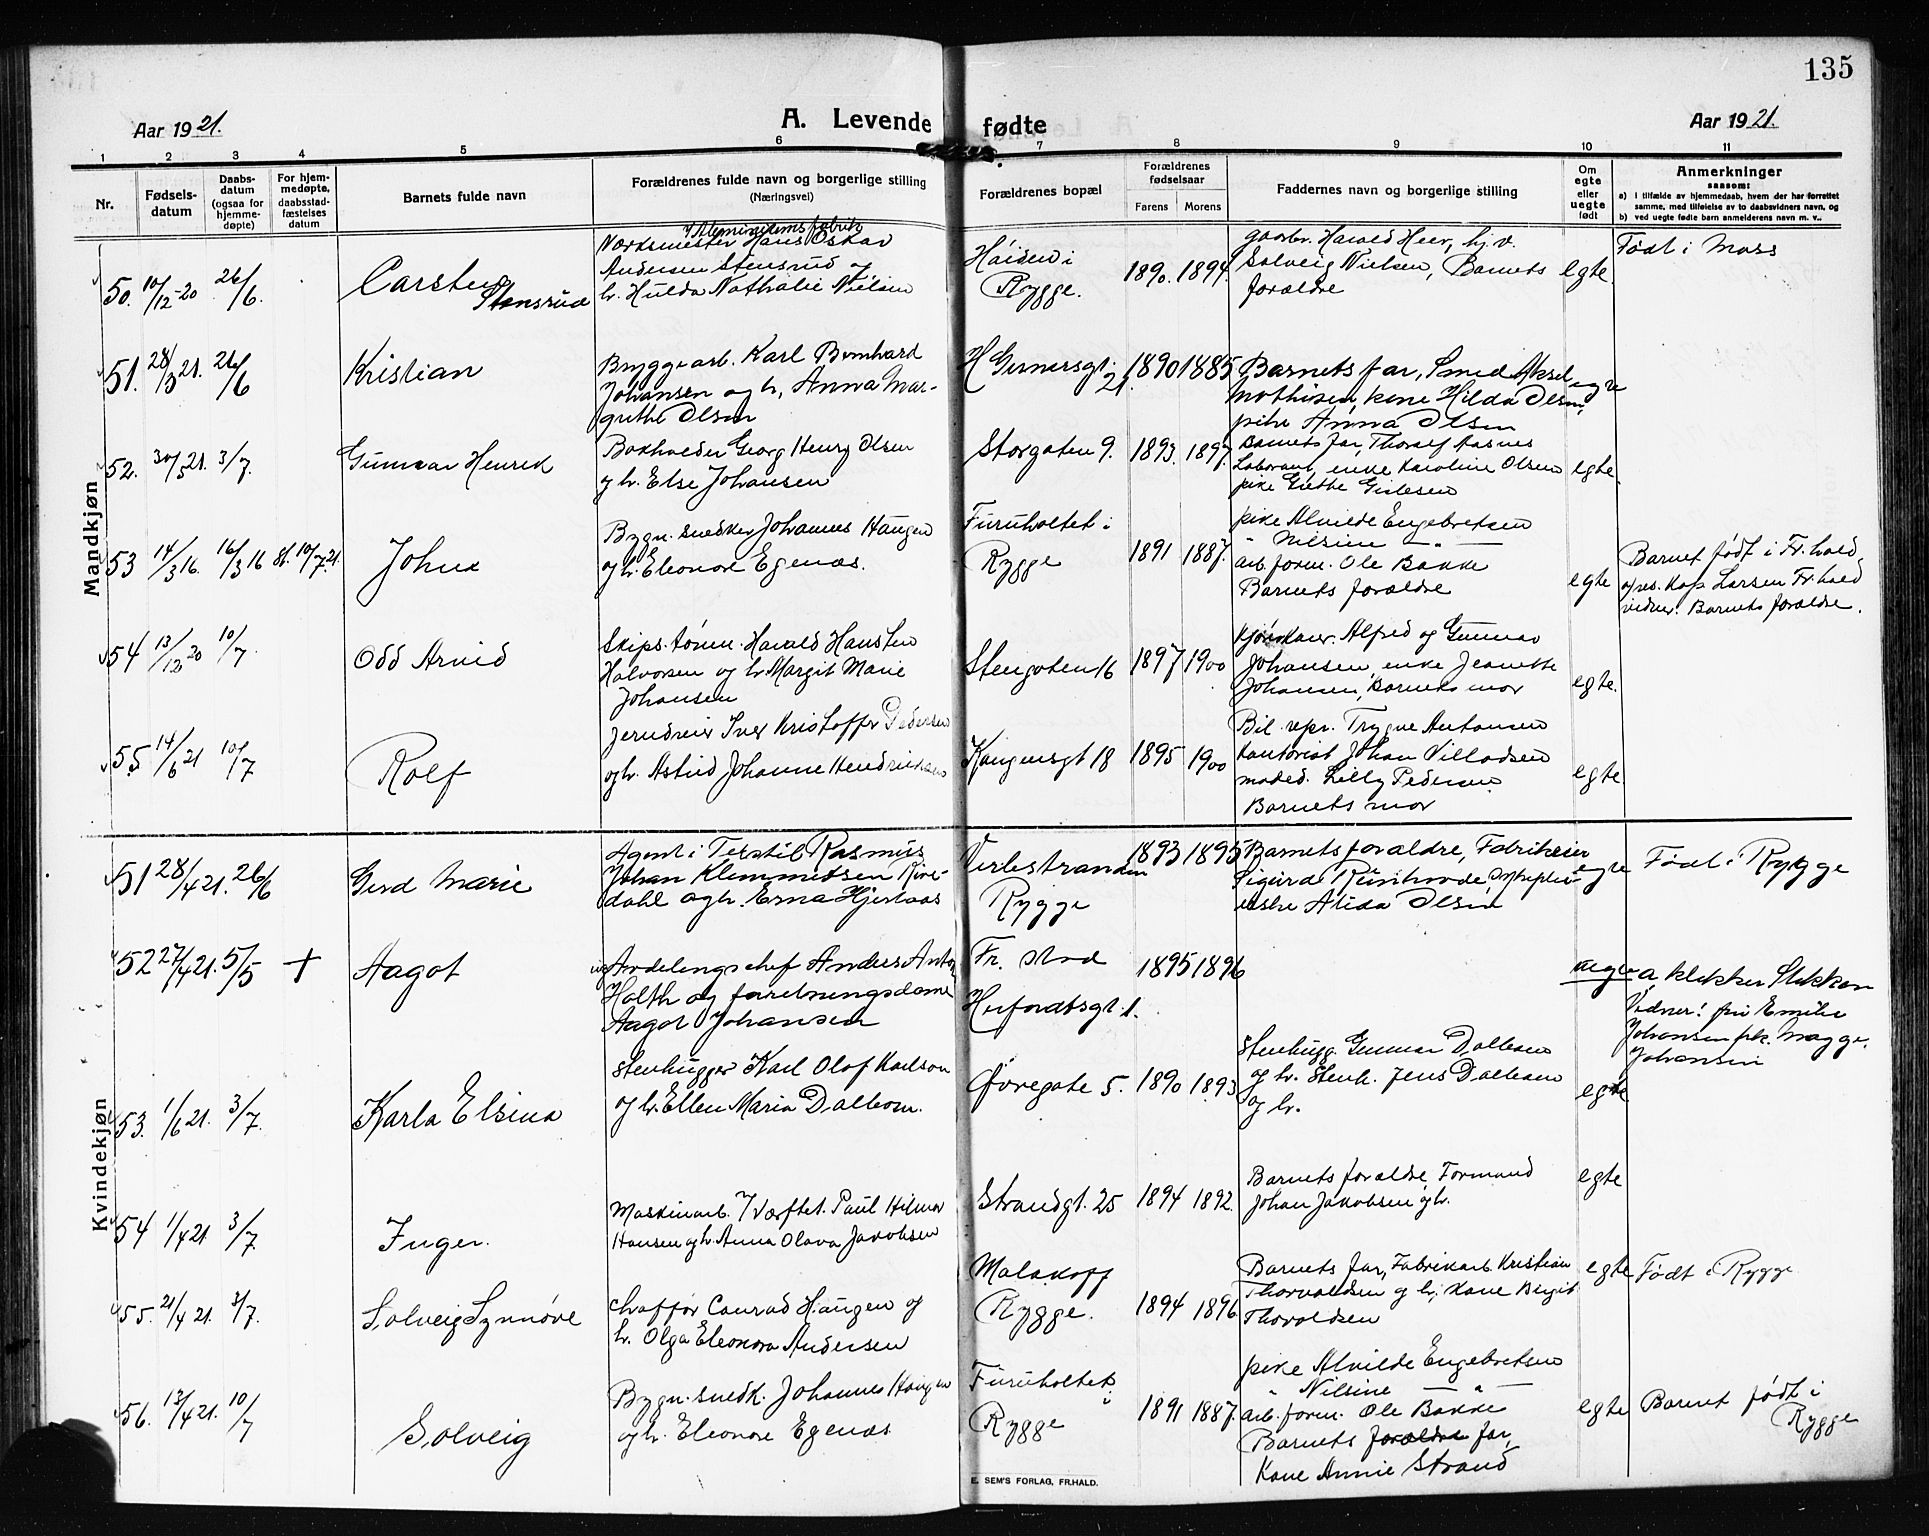 135
Aar 1921.
A. Levende fødte
Aar 1921.
1 2 3 4 5 6 7 8 9 10 11
Nr.
Fødsels-
datum
Daabs-
datum
(ogsaa for
hjemme-
døpte)
For hjem-
medøpte,
daabsstad-
fæstelses
datum
Barnets fulde navn
Forældrenes fulde navn og borgerlige stilling
(Næringsvei)
Forældrenes bopæl
Forældrenes
fødselsaar
Farens Morens
Faddernes navn og borgerlige stilling
Om
egte
eller
uegte
født
Anmerkninger
saasom:
a) i tilfælde av hjemmedaab, hvem der har forrettet
samme, med tilføielse av to daabsvidners navn, og
b) ved uegte fødte barn anmelderens navn m. v..
Mandkjøn
50. 10/12-20 26/6.
Carsten
Stensrud
i Aluminiumsfabrik
Værksmester Hans Oskar
Andersen Stensrud og
h. Hulda Nathalie Nielsen
Høiden i
Rygge.
1890. 1894.
Gaarbr. Harald Heer, hj.v.
Solveig Nielsen, Barnets
forældre
egte
Født i Moss
51. 28/3 21. 26/6
Kristian
Bryggearb. Karl Bernhard
Johansen og h. Anna Mar-
grethe Olsen
H Gernersgt.
21.
1890 1885
Barnets far, Smed Aksel
Mathisen, kone Hilda Olsen,
pike Anna Olsen
egte
52. 30/5 21. 3/7.
Gunnar Henrik
Georg Henry Olsen
og h. Else Johansen
Storgaten 9.
1893. 1897.
Barnets far, Thoralf Aasnes
Laborant, enke Karoline Olsen
pike Grethe
egte.
53 14/3 16. 16/3 16 St. 10/7 21
John
Bygn. snedker Johannes Haugen
og h. Eleonore Egenæs.
Furuholtet i
Rygge
1891 1887.
pike Alvilde Engebretsen
" Nilsine — " —
arb. form. Ole Bakke
Barnets forældre
egte
Barnet født i Fr.hald,
af res. Kap Larsen Fr.hald
vidner: Barnets forældre.
54 13/12 20 10/7.
Odd Arvid
Skips.tømm. Harald Hansten
Halvorsen og h. Margit Marie
Johansen
Stengaten 16
1897 1900
Alfred og Gunnar
Johansen, enke Jeanette
Johansen, Barnets mor
egte.
55 14/6 21 10/7
Rolf
Jerndreier Iver Kristoffer Pedersen
og h. Astrid Johanne Hendriksen
Kongensgt 18
1895 1900
Bil.repr. Trygve Antonsen
kontorist Johan Villadsen
moded. Lilly Pedersen
Barnets mor
egte
Kvindekjøn
51 28/4 21. 26/6
Gerd Marie
Agent i Tekstil Rasmus
Johan Klemmetsen Rive-
dahl og h. Erna Hjertaas
Verlestranden
Rygge
1893 1895
Barnets forældre, Fabrikeier
Sigurd
Alida Olsen
egte
Født i Rygge
52 27/4 21. 5/5 +
Aagot
Avdelingschef Anders Anton
Holth og forretningsdame
Aagot Johansen
Fr. stad
Herfordtsgt. 1.
1895 1896
uegte
a, klokker Stikkan
Vidner: fru Emilie
Johansen frk. Magge.
Johansen
53. 1/6 21. 3/7.
Karla Elsina
Stenhugger Karl Olof Karlson
og h. Ellen Maria Dalbom.
Øvregate 5.
1890 1893
Stenhugg. Gunnar Dalbom
og h. Stenh. Jens Dalbom
og h.
egte
54 1/4 21. 3/7.
Inger.
Maskinarb. v/ Værftet. Paul Hilmar
Hansen og h. Anna Olava Jakobsen
Strandgt. 25
1894 1892.
Barnets forældre, Formand
Johan Jakobsen og h.
egte
55. 21/4 21. 3/7.
Solveig Synnøve
Chaffør Conrad Haugen og
h. Olga Eleonora Andersen
Malakoff
Rygge.
1894 1896
Barnets far, Fabrikarb Kristian
Thorvaldsen og h, kone Birgit
Thoroldsen
egte
Født i Rygge
56. 13/4 21. 10/7
Solveig
Bygn. snedk. Johannes Haugen
og h. Eleonore Egenæs
Furuholtet
i
Rygge
1891 1887.
pike Alvilde Engebretsen
" Nilsine — " —
arb. form. Ole Bakke
Barnets forældre far,
Kone Annie Strand
egte
Barnet født i
Rygge
E. SEM'S FORLAG, FR.HALD.